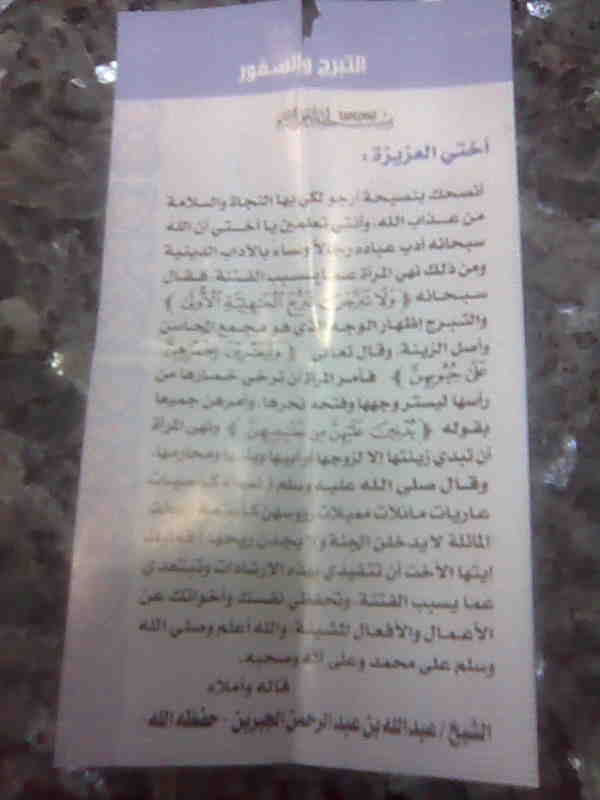 التبرج والسفور
بسم الله الرحمن الرحيم
أختي العزيزة :
أنصحك بنصيحة أرجو لكي بها النجاة والسلامة
من عذاب الله، وأنتي تعلمين يا أختي أن الله
سبحانه أدب عباده رجالاً ونساء بالآداب الدينية
ومن ذلك نهي المرأة عما يسبب الفتنة فقال
سبحانه ﴿ وَلَا تَبَرَّجْنَ تَبَرُّجَ الْجَاهِلِيَّةِ الْأُولَى ﴾
والتبرج إظهار الوجه الذي هو مجمع المحاسن
وأصل الزينة، وقال تعالى ﴿ وَلْيَضْرِبْنَ بِخُمُرِهِنَّ
عَلَى جُيُوبِهِنَّ ﴾ فأمر المرأة أن ترخي خمارها من
رأسها ليستر وجهها وفتحة نحرها، وأمرهن جميعا
بقوله ﴿ يُدْنِينَ عَلَيْهِنَّ مِن جَلَابِيبِهِنَّ ﴾ ونهى المرأة
أن تبدي زينتها إلا لزوجها أو أبيها ومحارمها،
وقال صلى الله عليه وسلم ( نساء كاسيات
عاريات مائلات مميلات رؤسهن كأسنمة البخت
المائلة لا يدخلن الجنة ولا يجدن ريحها )
أيتها الأخت أن تتقيدي بهذه الإرشادات وتبتعدي
عما يسبب الفتنة، وتحفظي نفسك وأخواتك عن
الأعمال والأفعال المشينة، والله أعلم وصلى الله
وسلم على محمد وعلى آله وصحبه.
قاله وأملاه
الشيخ / عبدالله بن عبدالرحمن الجبرين - حفظه الله